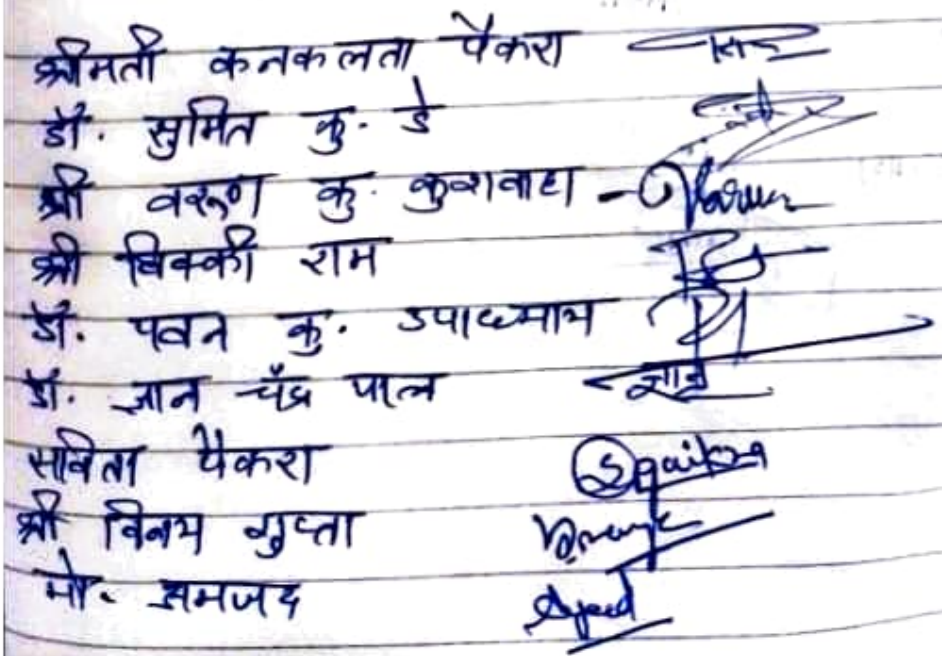 श्रीमती कनकलता पैकरा
डॉ. सुमित कु. डे
श्री वरुण कु. कुशवाहा - Varun
श्री विक्की राम
डॉ. पवन कु. उपाध्याय
डॉ. ज्ञान चँद्र पाल
सविता पैकरा Spaikra
श्री विनय गुप्ता
मो. अमजद